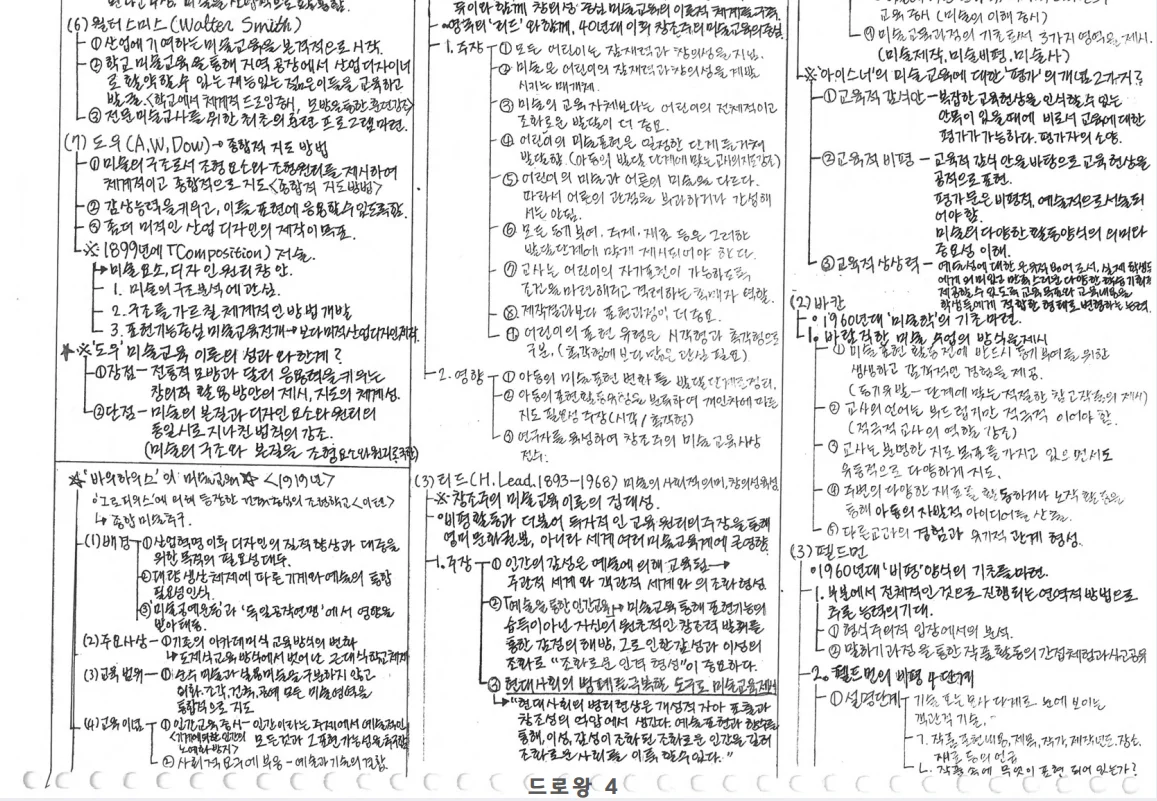 (6) 월터스미스(Walter Smith)
① 산업에 기여하는 미술교육을 본격적으로 시작.
② 학교 미술교육을 통해 지역 공장에서 산업디자이너
로 활약할 수 있는 재능있는 젊은이들을 교육하고
발굴. <학교에서 체계적 드로잉중시, 모방을통한 훈련강조>
③ 전문미술교사를 위한 최초의 훈련 프로그램 마련.
(7) 도우(A.W.Dow) → 종합적 지도 방법
① 미술의 구조로서 조형요소와 조형원리를 제시하여
체계적이고 종합적으로 지도 <종합적 지도방법>
② 감상능력을 키우고, 이를 표현에 응용할수 있도록함.
③ 좀더 미적인 산업 디자인의 제작이 목표.
※ 1899년에 「Composition」 저술.
미술요소, 디자인 원리 창안.
1. 미술의 구조분석에 관심.
2. 구조를 가르칠 체계적인 방법 개발
3. 표현기능중심 미술교육전개 → 보다 미적 산업디자인 제작
★※'도우' 미술교육 이론의 성과와 한계?
①장점 - 전통적 모방과 달리 응용력을 키우는
창의적 활용 방안의 제시, 지도의 체계성.
②단점 - 미술의 본질과 디자인 요소와 원리의
동일시로 지나친 법칙의 강조.
(미술의 구조와 본질을 조형요소와 원리로
'바우하우스'의 미술교육 <1919년>
'그로피우스'에 의해 등장한 건축중심의 조형학교
↳ 종합미술추구.
(1)배경 ①산업혁명 이후 디자인의 질적향상과 대중을
위한 목적의 필요성 대두.
②대량 생산체제에 따른 기계와 예술의 통합
필요성 인식.
③미술공예운동과 '독일공작연맹'에서 영향을
받아 태동.
(2)주요사상 - ①기존의 아카데미식 교육방식의 변화
↳도제식교육 방식에서 벗어난 근대식학교체계
(3)교육 범위 - ① 순수 미술과 실용미술을 구분하지 않고
회화. 조각, 건축, 공예 모든 미술영역을
통합적으로 지도
(4)교육이념 ① 인간교육 중시 - 인간이라는 주제에서 예술적인
모든것과 그 표현 가능성을
② 사회적 요구에 부응 - 예술과 기술의 결합.
영국의 '리드'와 함께, 40년대 이후 창조주의 미술교육의 중심.
1. 주장 ① 모든 어린이는 잠재력과 창의성을 지님.
② 미술은 어린이의 잠재력과 창의성을 계발
시키는 매개체.
③ 미술의 교육 자체보다는 어린이의 전체적이고
조화로운 발달이 더 중요.
④ 어린이의 미술표현은 일정한 단계를 거쳐
발달함. (아동의 발달 단계에 맞는 교사의 지도강조)
⑤ 어린이의 미술과 어른의 미술은 다르다.
따라서 어른의 관점을 부과하거나 간섭해
서는 안됨.
⑥ 모든 동기부여. 주제. 재료 등은 그러한
발달단계에 맞게 제시되어야 한다.
⑦ 교사는 어린이의 자기표현이 가능하도록
조건을 마련해주고 격려하는 촉매자 역할.
⑧ 제작결과보다 표현과정이 더중요.
⑨ 어린이의 표현 유형은 시각형과 촉각형으로
구분, (촉각형에 보다 많은 관심 필요)
2. 영향 ① 아동의 미술표현 변화를 발달단계로 정리.
② 아동의 표현활동유형을 분류하여 개인차에 따른
지도 필요성 주장 (시각 / 촉각형)
③ 연구자를 육성하여 창조주의 미술교육사상
전수.
(3) 리드(H.Lead.1893-1968) 미술의 사회적 의미, 창의성 육성
※ 창조주의 미술교육 이론의 집대성.
비평 활동과 더불어 독자적인 교육 원리의 주장을 통해
영미 문화권뿐, 아니라 세계 여러 미술교육계에 큰영향.
1. 주장 ① 인간의 감성은 예술에 의해 교육됨 →
주관적 세계와 객관적 세계와의 조화형성
②「예술을 통한 인간교육」 → 미술교육 통해 표현기능의
습득이 아닌 자신의 원초적인 창조력 발휘를
통한 감정의 해방, 그로 인한 감성과 이성의
조화로 "조화로운 인격 형성"이 중요하다.
③ 현대사회의 병폐를 극복할 도구로 미술교육제시
"현대사회의 병리현상은 개성적 자아 표출과
창조성의 억압에서 생긴다. 예술표현과 향수를
통해, 이성, 감성이 조화된 조화로운 인간을 길러
조화로운 사회를 이룩할수 있다."
교육 중시 (미술의 이해 중시)
④ 미술교육과정의 기초로써 3가지 영역을 제시.
(미술제작, 미술비평, 미술사)
※'아이스너'의 미술교육에 대한 '평가'의 개념 2가지?
①교육적 감식안 - 복잡한 교육현상을 인식할 수 있는
안목이 있을 때에 비로서 교육에 대한
평가가 가능하다. 평가자의 소양.
②교육적 비평 - 교육적 감식안을 바탕으로 교육현상을
공적으로 표현.
평가문은 비평적, 예술적으로 서술되
어야 함.
미술의 다양한 활동양식의 의미와
중요성 이해.
③교육적상상력 -
제공할수 있도록 교육목표와 교육내용을
학생들에게 적합한 형태로 변형하는 능력.
(2) 바칸
1960년대 '미술학'의 기초 마련.
1. 바람직한 미술 수업의 방식을 제시
① 미술 표현 활동전에 반드시 동기부여를 위한
생생하고 감각적인 경험을 제공.
(동기유발 - 단계에 맞는 적절한 참고작품의 제시)
② 교사의 언어는 부드럽지만 적극적 이어야 함.
(적극적 교사의 역할 강조)
③ 교사는 분명한 지도 목표를 가지고 있으면서도
유동적으로 다양하게 지도.
④ 주변의 다양한 재료를 활동하거나 노작 활동을
통해 아동의 자발적 아이디어를 산출.
⑤ 다른교과의 경험과 유기적 관계 형성.
(3) 펠드먼
1960년대 '비평'양식의 기초를 마련.
1. 부분에서 전체적인 것으로 진행되는 연역적 방법으로
추론 능력의 기대.
① 형식주의적 입장에서의 분석.
② 말하기 과정을 통한 작품 활동의 간접체험과 사고공유
2. 펠드먼의 비평 4단계
① 설명단계 - 기술 또는 묘사 단계로 눈에 보이는
객관적 기술.
ㄱ. 작품 표현내용, 제목, 작가, 제작년도, 장소,
재료 등의 언급
ㄴ. 작품 속에 무엇이 표현 되어 있는가?
드로왕 4